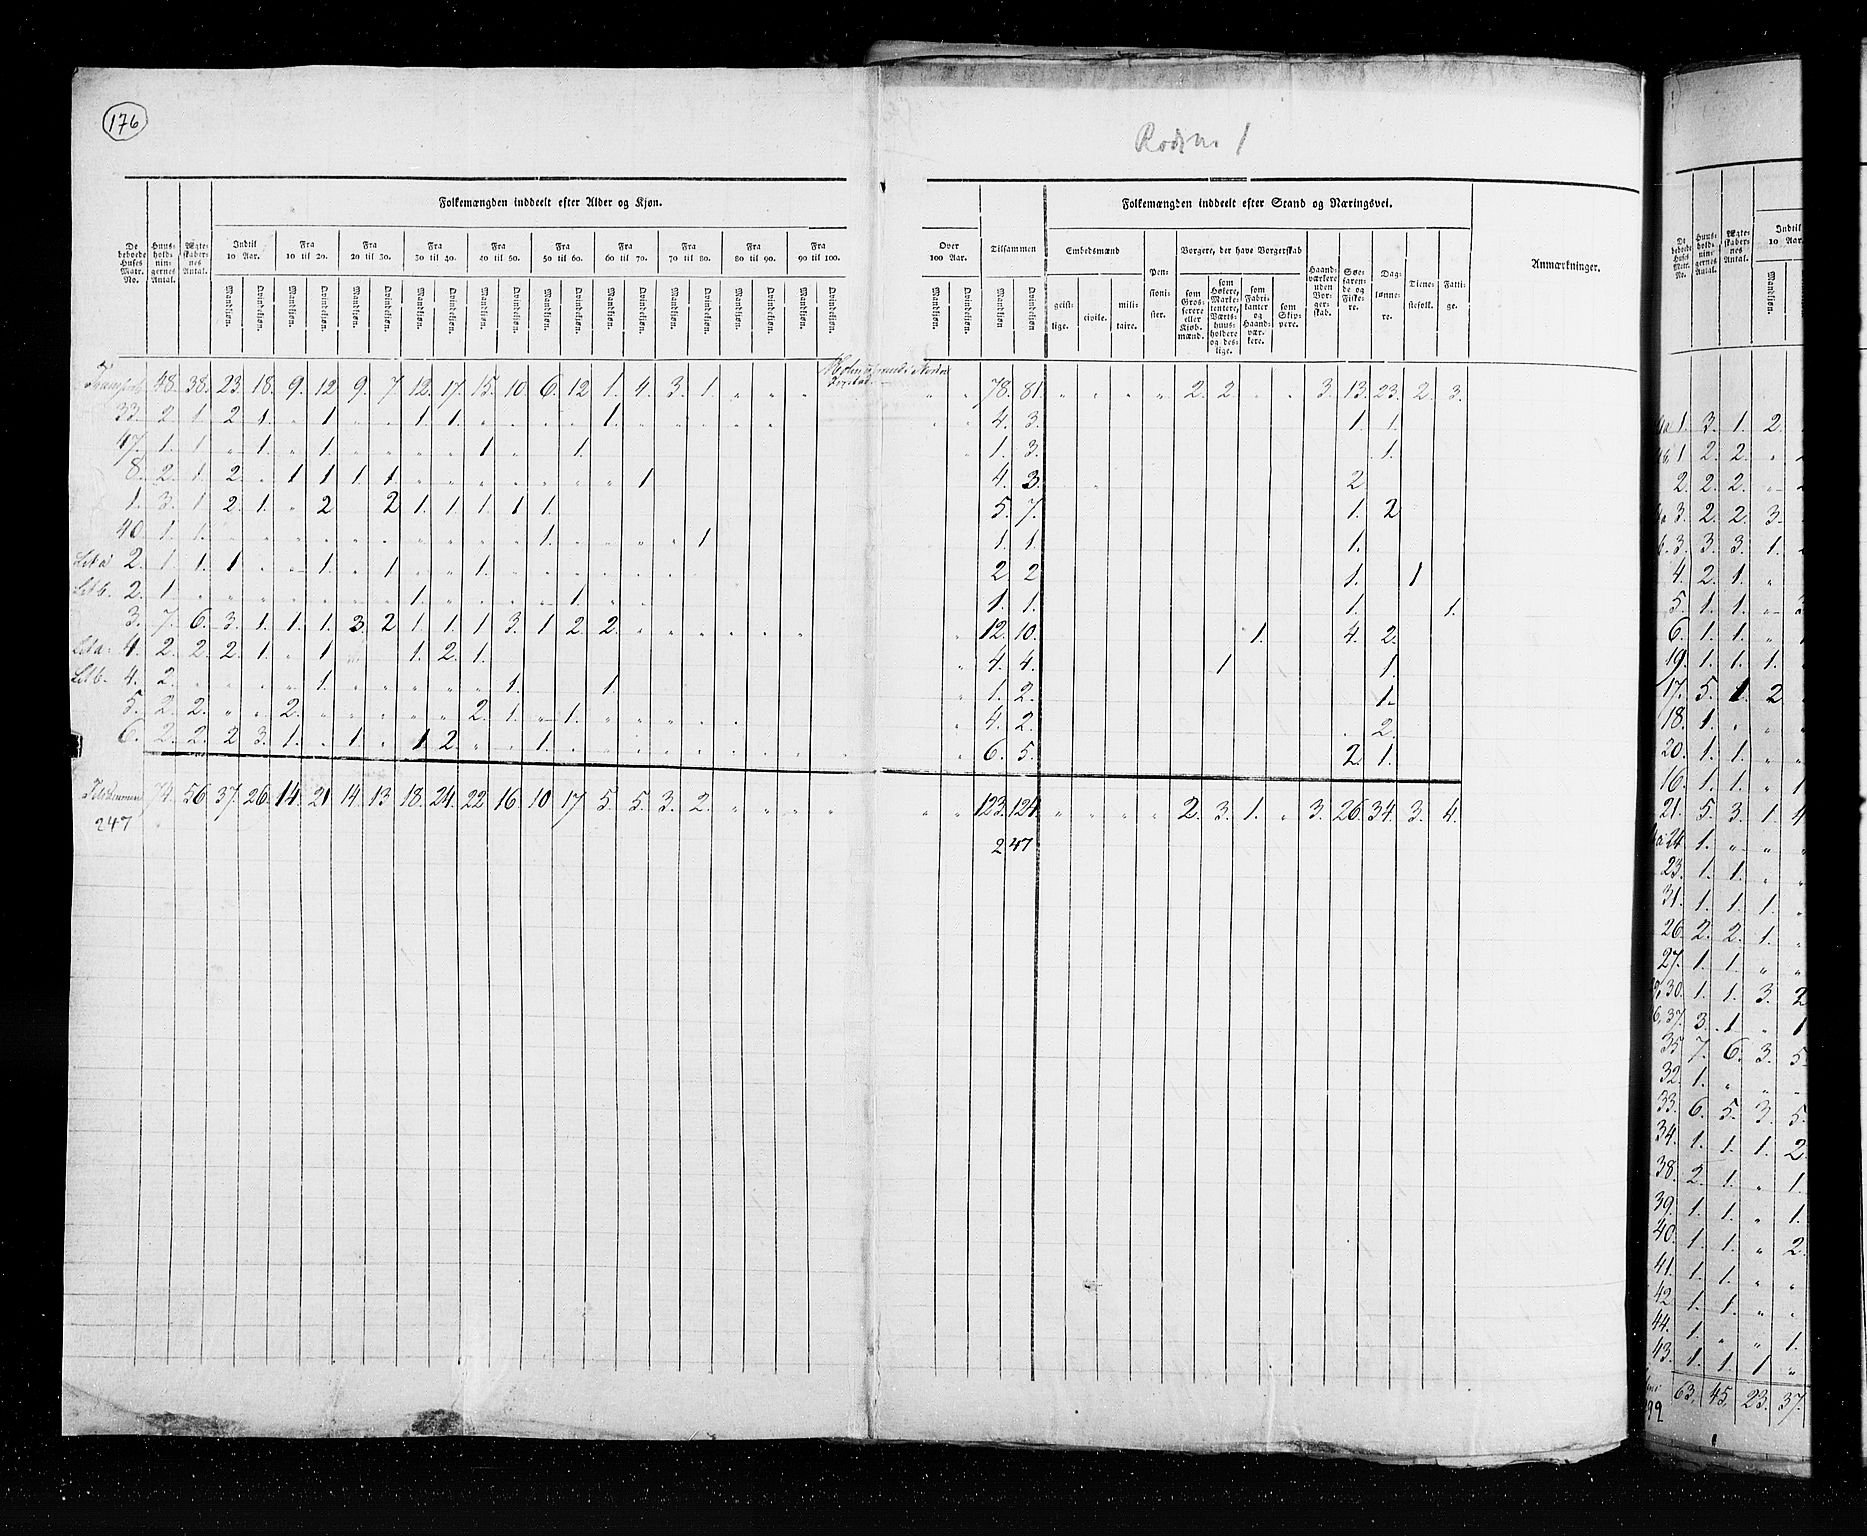 176
Rode no. 1
Folkemængden inddeelt efter Alder og Kjøn.
Folkemængden inddeelt efter Stand og Næringsvei.
De beboede Huses Matr. No. | Huusholdningernes Antal. | Ægteskabernes Antal. | Indtil 10 Aar. | Fra 10 til 20. | Fra 20 til 30. | Fra 30 til 40. | Fra 40 til 50. | Fra 50 til 60. | Fra 60 til 70. | Fra 70 til 80. | Fra 80 til 90. | Fra 90 til 100. | Over 100 Aar. | Tilsammen | Embedsmænd | Pensionister. | Borgere, der have Borgerskab | Haandværkere uden Borgerskab. | Søefarende og Fiskere. | Daglønnere. | Tienestefolk. | Fattige. | Anmærkninger.
Mandkjøn. Qvindekjøn.
geistlige. | civile. | militaire. | som Grosserere eller Kjøbmænd. | som Høkere, Marketentere, Værtshuusholdere og deslige. | som Fabrikanter og Haandværkere. | som Skippere.
Transport 48. 38. 23. 18. 9. 12. 9. 7. 12. 17. 15. 10. 6. 12 1. 4. 3. 1. „ „ „ „ „ 78. 81. „ „ „ „ 2. 2. „ „ 3. 13. 23. 2. 3.
33. 2. 1. 2. 1. „ 1. „ „ 1. 1. „ „ „ „ 1. „ „ „ „ „ 4. 3. 1. 1.
47. 1. 1. „ 1. „ 1. „ „ „ „ 1. „ „ 1. 1. 3. 1.
8. 2. 1. 2. „ 1 1. 1. 1. „ „ „ „ „ „ „ 1 4. 3. 2
1. 3. 1 2. 1. „ 2 2 1. 1. 1. 1 1. 5. 7. 1. 2
40. 1. 1. „ „ „ „ „ „ „ „ „ „ 1. „ „ „ „ 1 1. 1. 1.
Lit a 2. 1. 1. 1 „ „ 1. „ 1. „ „ 1. „ „ „ „ „ 2. 2 1. 1
Lit b. 2. 1. „ „ „ „ „ „ „ 1. „ „ „ „ 1. „ „ 1. 1. 1. 1.
3. 7. 6. 3. 1. 1. 1. 3. 2 1. 1. 1 3. 1 2. 2. „ „ „ „ „ „ 12. 10. 1. 4. 2.
Lit a. 4. 2. 2. 2. 1. „ 1 1. 2. 1. „ 4. 4. 1 1.
Lit b. 4. 2. „ „ „ „ 1. „ „ „ „ „ 1. 1. „ 1. 2. 1.
5. 2. 2. „ „ 2. „ „ „ „ „ 2. 1. „ 1. „ „ „ „ „ „ 4. 2. 2.
6. 2. 2. 2 3. 1. „ 1. „ 1 2. „ „ 1. „ „ „ „ „ „ „ „ „ „ 6. 5. 2. 1.
Tilsammen 74. 56 37. 26. 14. 21 14. 13 18. 24. 22 16. 10 17 5. 5. 3. 2. „ „ „ „ „ „ 123. 124. „ „ „ „ 2. 3. 1. „ 3. 26. 34. 3. 4.
247
247
De beboede Huses Matr. No. | Huusholdningernes Antal. | Ægteskabernes Antal. | Indtil 10 Aar.
Mandkjøn.
1. 3. 1. 2.
1 2. 2. „
2. 2. 2. „
3. 2. 2. 3.
3. 3. 3. 1.
4. 2. 1. „
5. 1. 1. „
6. 1. 1. „
19. 1. 1. 1.
17. 5. 1. 2
18. 1. „ „
20. 1. 1. „
16. 1. 1. „ 1
21. 5. 3. 1. 4
24. 1. „ „ „
23. 1. 1. „ „
31. 1. 1. 1. „
26. 2. 2. 1. „
27. 1. 1. „ „
30. 1. 1. 3. 2
37. 3. 1 „ 1
35 7. 6. 3. 5
32. 1. „ „ „
33. 6. 5. 3. 5.
34. 1. 1. 1. 2.
38. 2. 1. „ 1.
39. 1. 1. „ 1.
40. 1. 1. „ 2.
41. 1. 1. „ „
42 1. 1. „ „
44. 1. „ „ 1.
43. 1. 1. 1 „
63. 45. 23. 37.